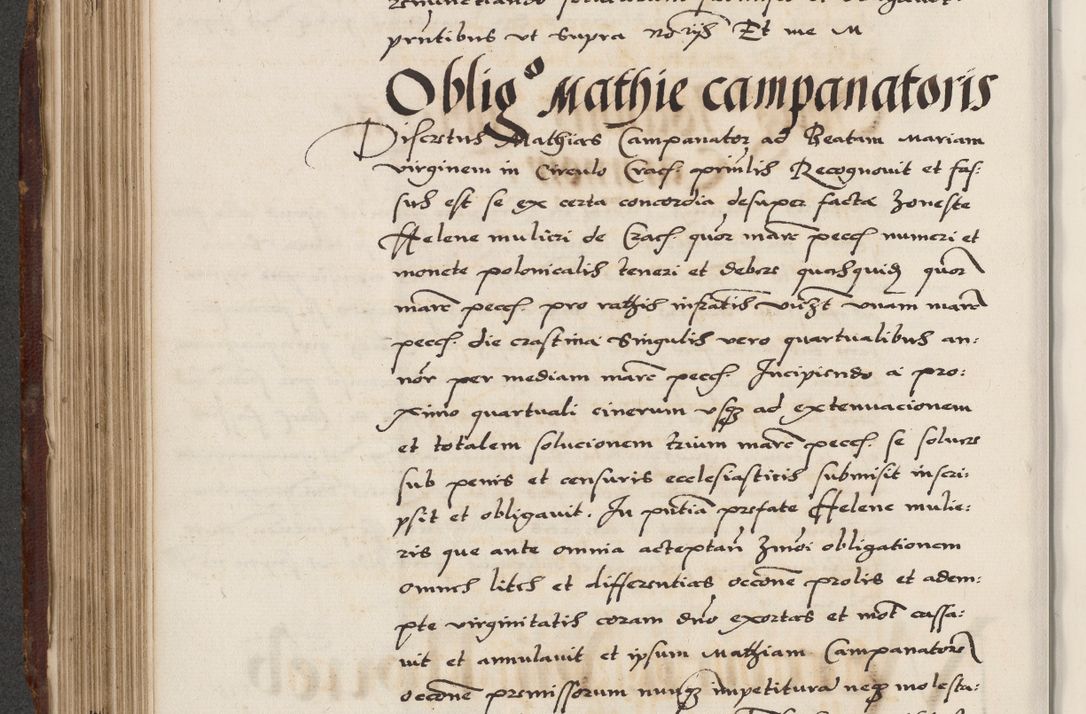 prntibus ut supra Et me M
Oblig° Mathie campanatoris
Discretus Mathias Campanator ad Beatam Mariam
virginem in Circulo Crac. prinlis Recognovit et fas:
sus est se ex certa concordia desuper facta honeste
Helene mulieri de Crac. quor marc pecc. numeri et
monete polonicalis teneri et debere quasquid quor
marc pecc. pro rathis infratis vicht unam marc
pecc. die crastina singulis vero quartualibus an:
nor per mediam marc pecc. Incipiendo a pro:
ximo quartuali cinerum usq ad extenuacionem
et totalem solucionem trium marc pecc. se solvere
sub penis et censuris ecclesiasticis submisit inscri:
psit et obligavit. In pntia prefate Helene mulie:
ris que ante omnia acceptan hmoi obligationem
omnes lites et differentias occone prolis et adem:
pte virginitatis coram dno exortas et mot cassa:
vit et annulavit et ipsum Mathiam Campanatore
occone premissorum nunq impetitura neq molesta: